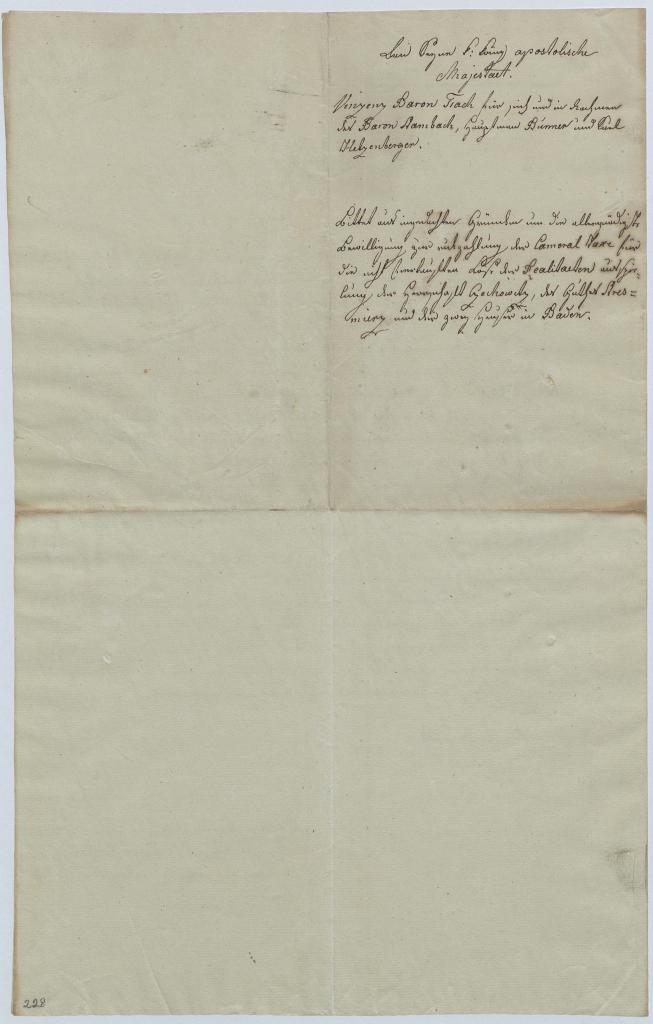 Eurer Kayser: König: apostolische
Majestaet.
Vinzenz Baron für sich und in Nahmen
des Baron Stambach, Hauptman Bünner und Karl
Welzenberger.
Bittet aus angeführten Gründen um die allergnädigste
Bewilligung zur auszahlung der Cameral Taxe für
die nicht Lose der Realitaeten ausspie-
lung der Herrschaft des Guthes Stres-
mierz und der zwey Häuser in Baden.
228